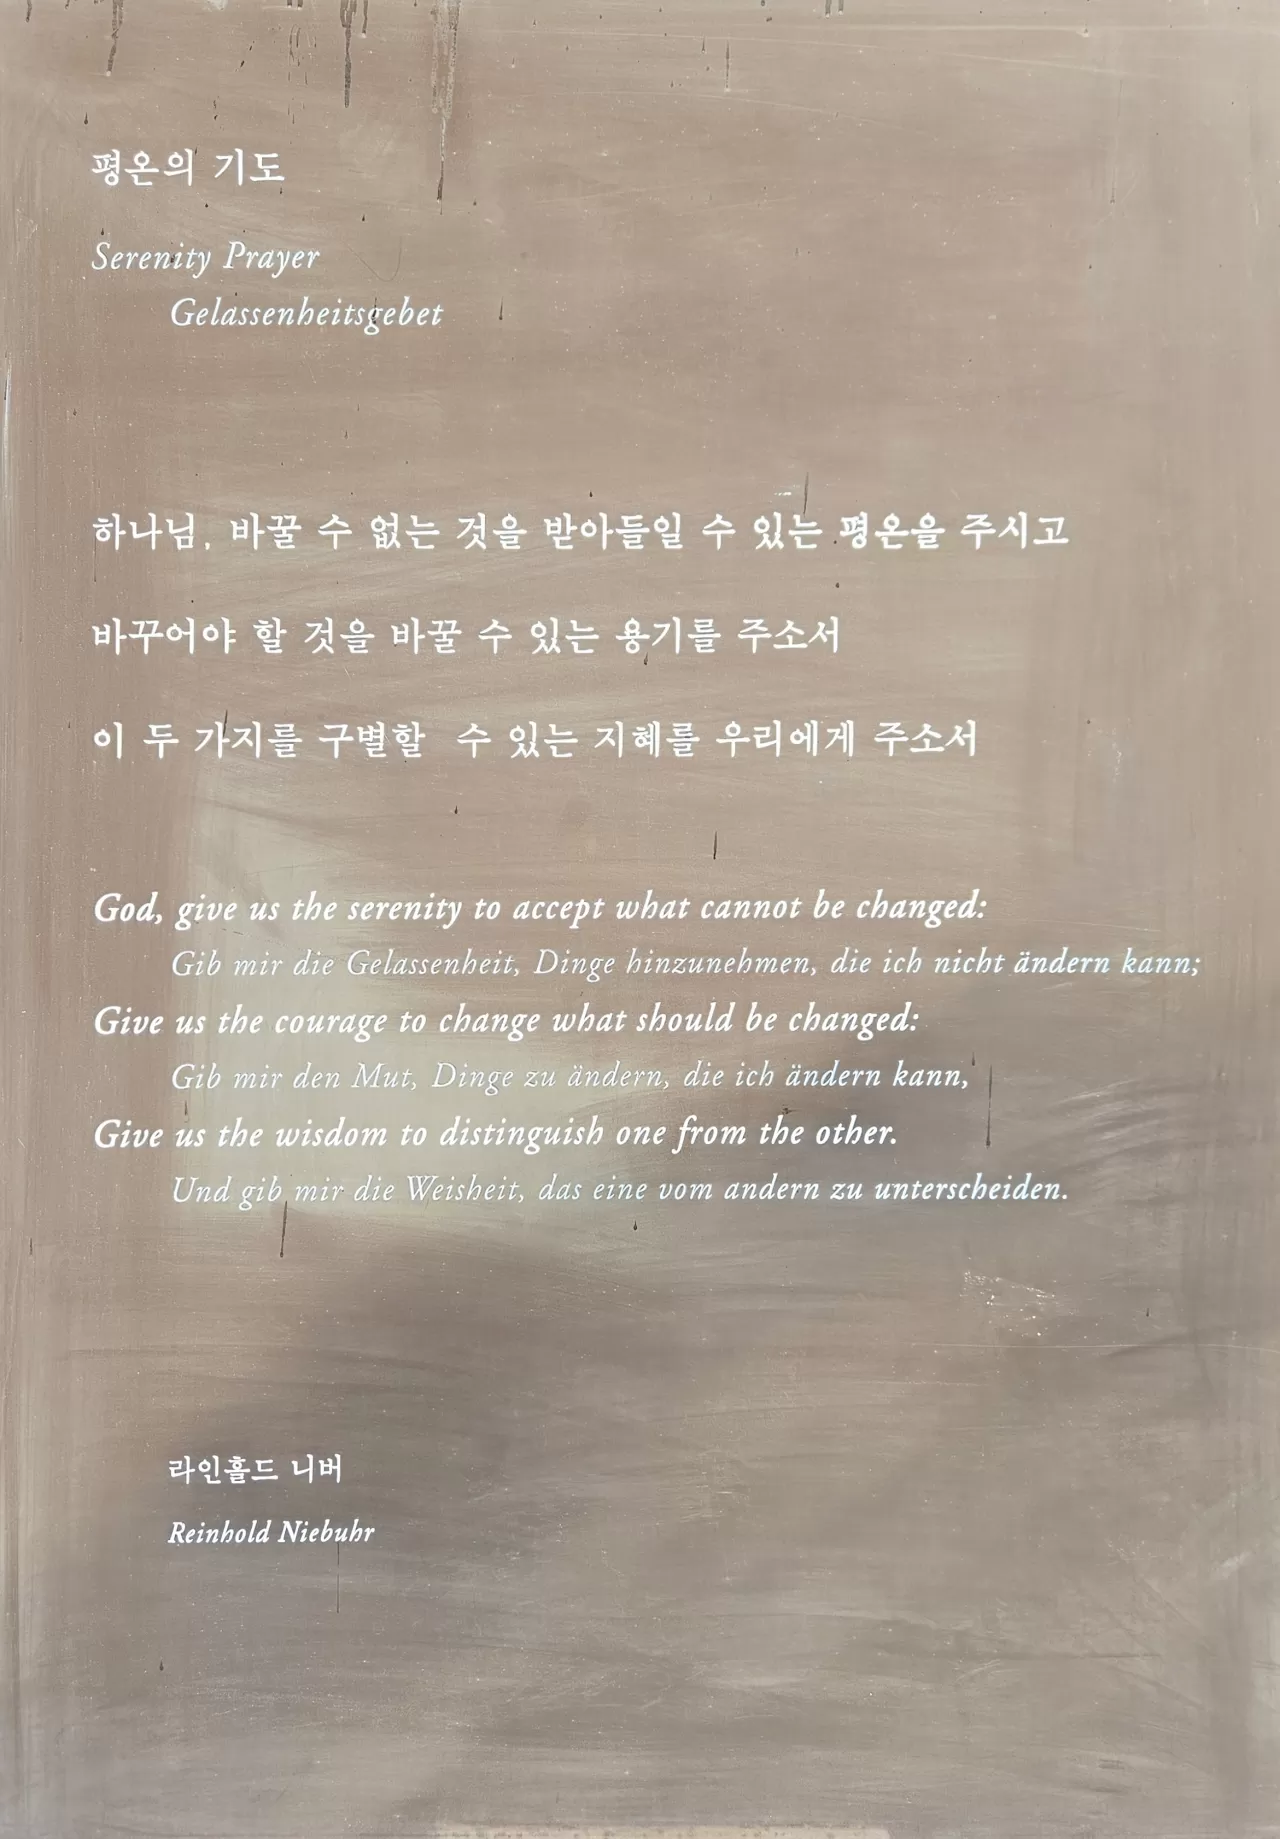 평온의 기도
Serenity Prayer
Gelassenheitsgebet
하나님, 바꿀 수 없는 것을 받아들일 수 있는 평온을 주시고
바꾸어야 할 것을 바꿀 수 있는 용기를 주소서
이 두 가지를 구별할 수 있는 지혜를 우리에게 주소서
God, give us the serenity to accept what cannot be changed:
Gib mir die Gelassenheit, Dinge hinzunehmen, die ich nicht ändern kann;
Give us the courage to change what should be changed:
Gib mir den Mut, Dinge zu ändern, die ich ändern kann,
Give us the wisdom to distinguish one from the other.
Und gib mir die Weisheit, das eine vom andern zu unterscheiden.
라인홀드 니버
Reinhold Niebuhr